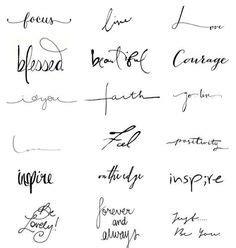 focus
live
Love
blessed
beautiful
Courage
faith
Love
Feel
positivity
inspire
on the edge
insp;re
Be
Lovely!
forever
and
always
Just....
Be You